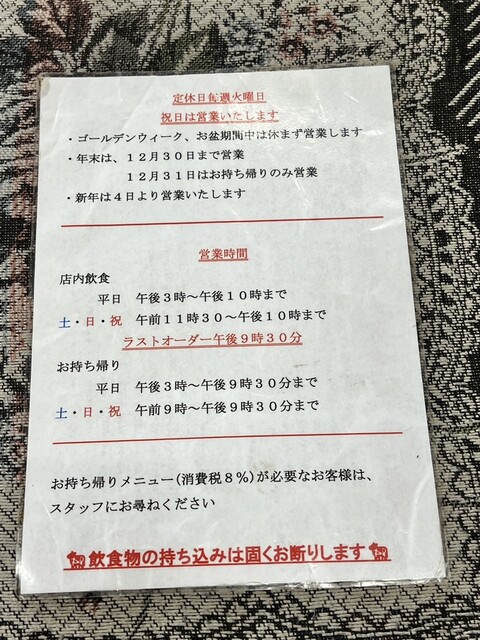 定休日毎週火曜日
祝日は営業いたします
・ゴールデンウィーク、お盆期間中は休まず営業します
・年末は、１２月３０日まで営業
１２月３１日はお持ち帰りのみ営業
・新年は４日より営業いたします
営業時間
店内飲食
平日　午後３時～午後１０時まで
土・日・祝　午前１１時３０～午後１０時まで
ラストオーダー午後９時３０分
お持ち帰り
平日　午後３時～午後９時３０分まで
土・日・祝　午前９時～午後９時３０まで
お持ち帰りメニュー(消費税８％)が必要なお客様は、
スタッフにお尋ねください
飲食物の持ち込みは固くお断りします